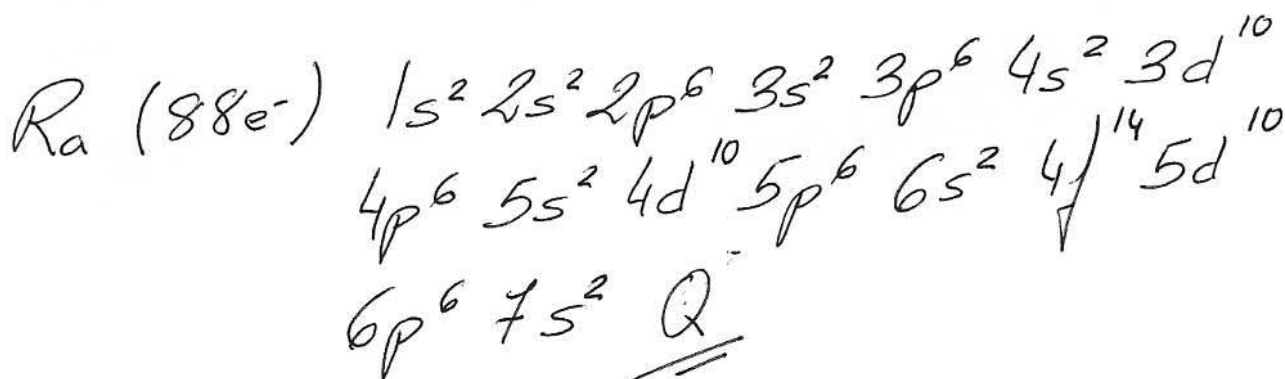 Ra (88e⁻) 1s² 2s² 2p⁶ 3s² 3p⁶ 4s² 3d¹⁰
4p⁶ 5s² 4d¹⁰ 5p⁶ 6s² 4f¹⁴ 5d¹⁰
6p⁶ 7s² Q